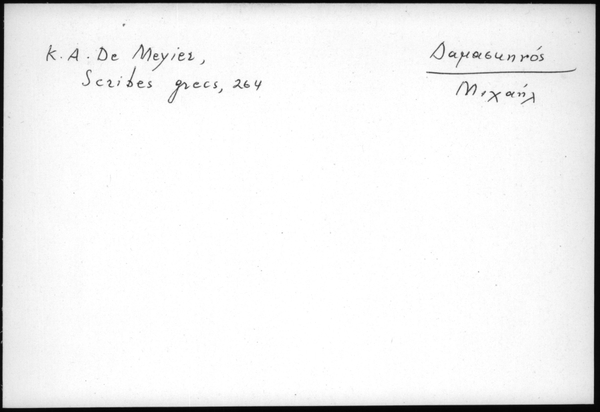 K. A. De Meyier,
Scribes grecs, 264
Δαμασκηνός
Μιχαήλ